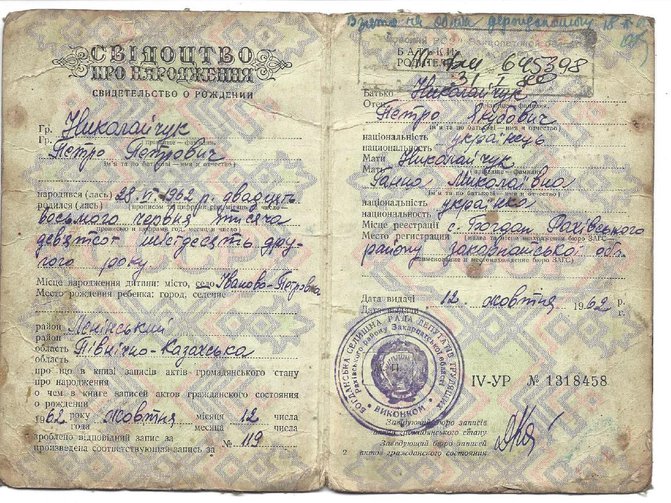 СВІДОЦТВО
ПРО НАРОДЖЕННЯ
СВИДЕТЕЛЬСТВО О РОЖДЕНИИ
Гр. Николайчук
Гр.
Петро Петрович
(ім'я та по батькові — имя и отчество)
народився (лась) 28 VI 1962 р. двадцять
родился (лась)
восьмого червня тисяча
девятсот шістдесять дру-
гого року
Місце народження дитини: місто, село Іваново-Петровка
Место рождения ребенка: город, селение
район Ленінський
район
область Північно-Казахська
область
про що в книзі записів актів громадянського стану
про народження
о чем в книге записей актов гражданского состояния
о рождении
1962 року жовтня місяця 12 числа
года месяца числа
зроблено відповідний запис за № 119
произведена соответствующая запись за
Взято на облік
БАТЬКИ
РОДИТЕЛИ
645398
31
Батько Николайчук
Отец
Петро Якубович
(ім'я та по батькові — имя и отчество)
національність українець
национальность
Мати Николайчук
Мать
Ганна Миколаївна
(ім'я та по батькові — имя и отчество)
національність українка
национальность
Місце реєстрації с. Богдан Рахівського
Место регистрации
району закарпатської обл.
Дата видачі 12 жовтня 1962 р.
Дата выдачи г.
БОГДАНСЬКА СЕЛИЩНА РАДА ДЕПУТАТІВ ТРУДЯЩИХ
Рахівського району Закарпатської області
ВИКОНКОМ
IV-УР № 1318458
Завідуючий бюро записів
актів громадянського стану
Заведующий бюро записей
2 актов гражданского состояния